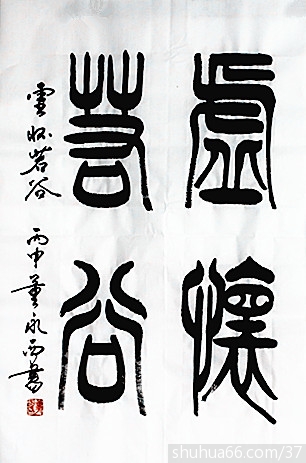 虛懷
若谷
虚怀若谷 丙申董永西書
shuhua66.com/37